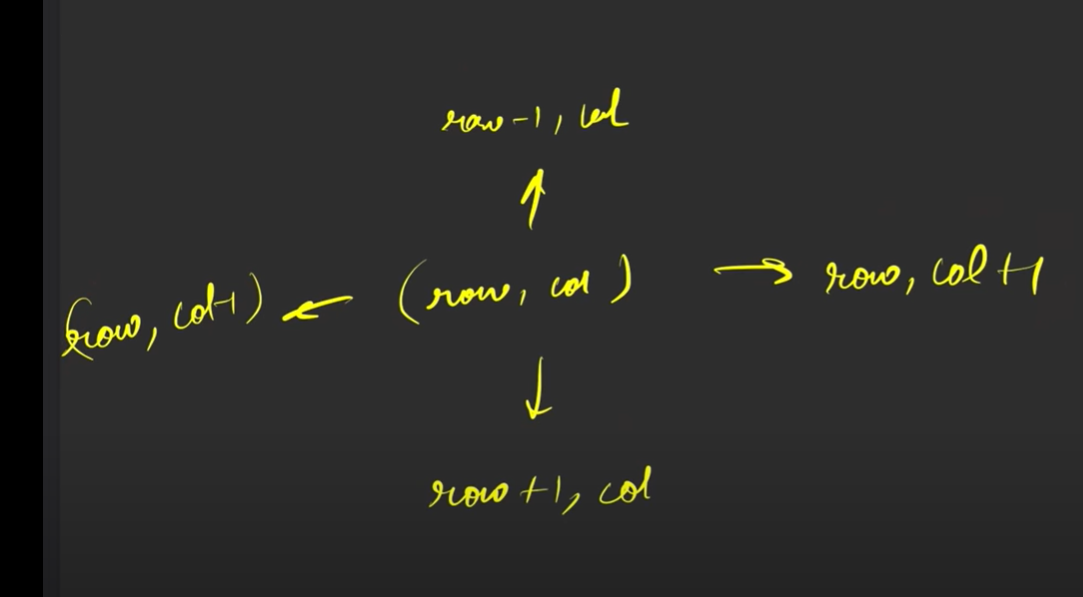 row-1, col
(row, col-1) ← (row, col) → row, col+1
row+1, col